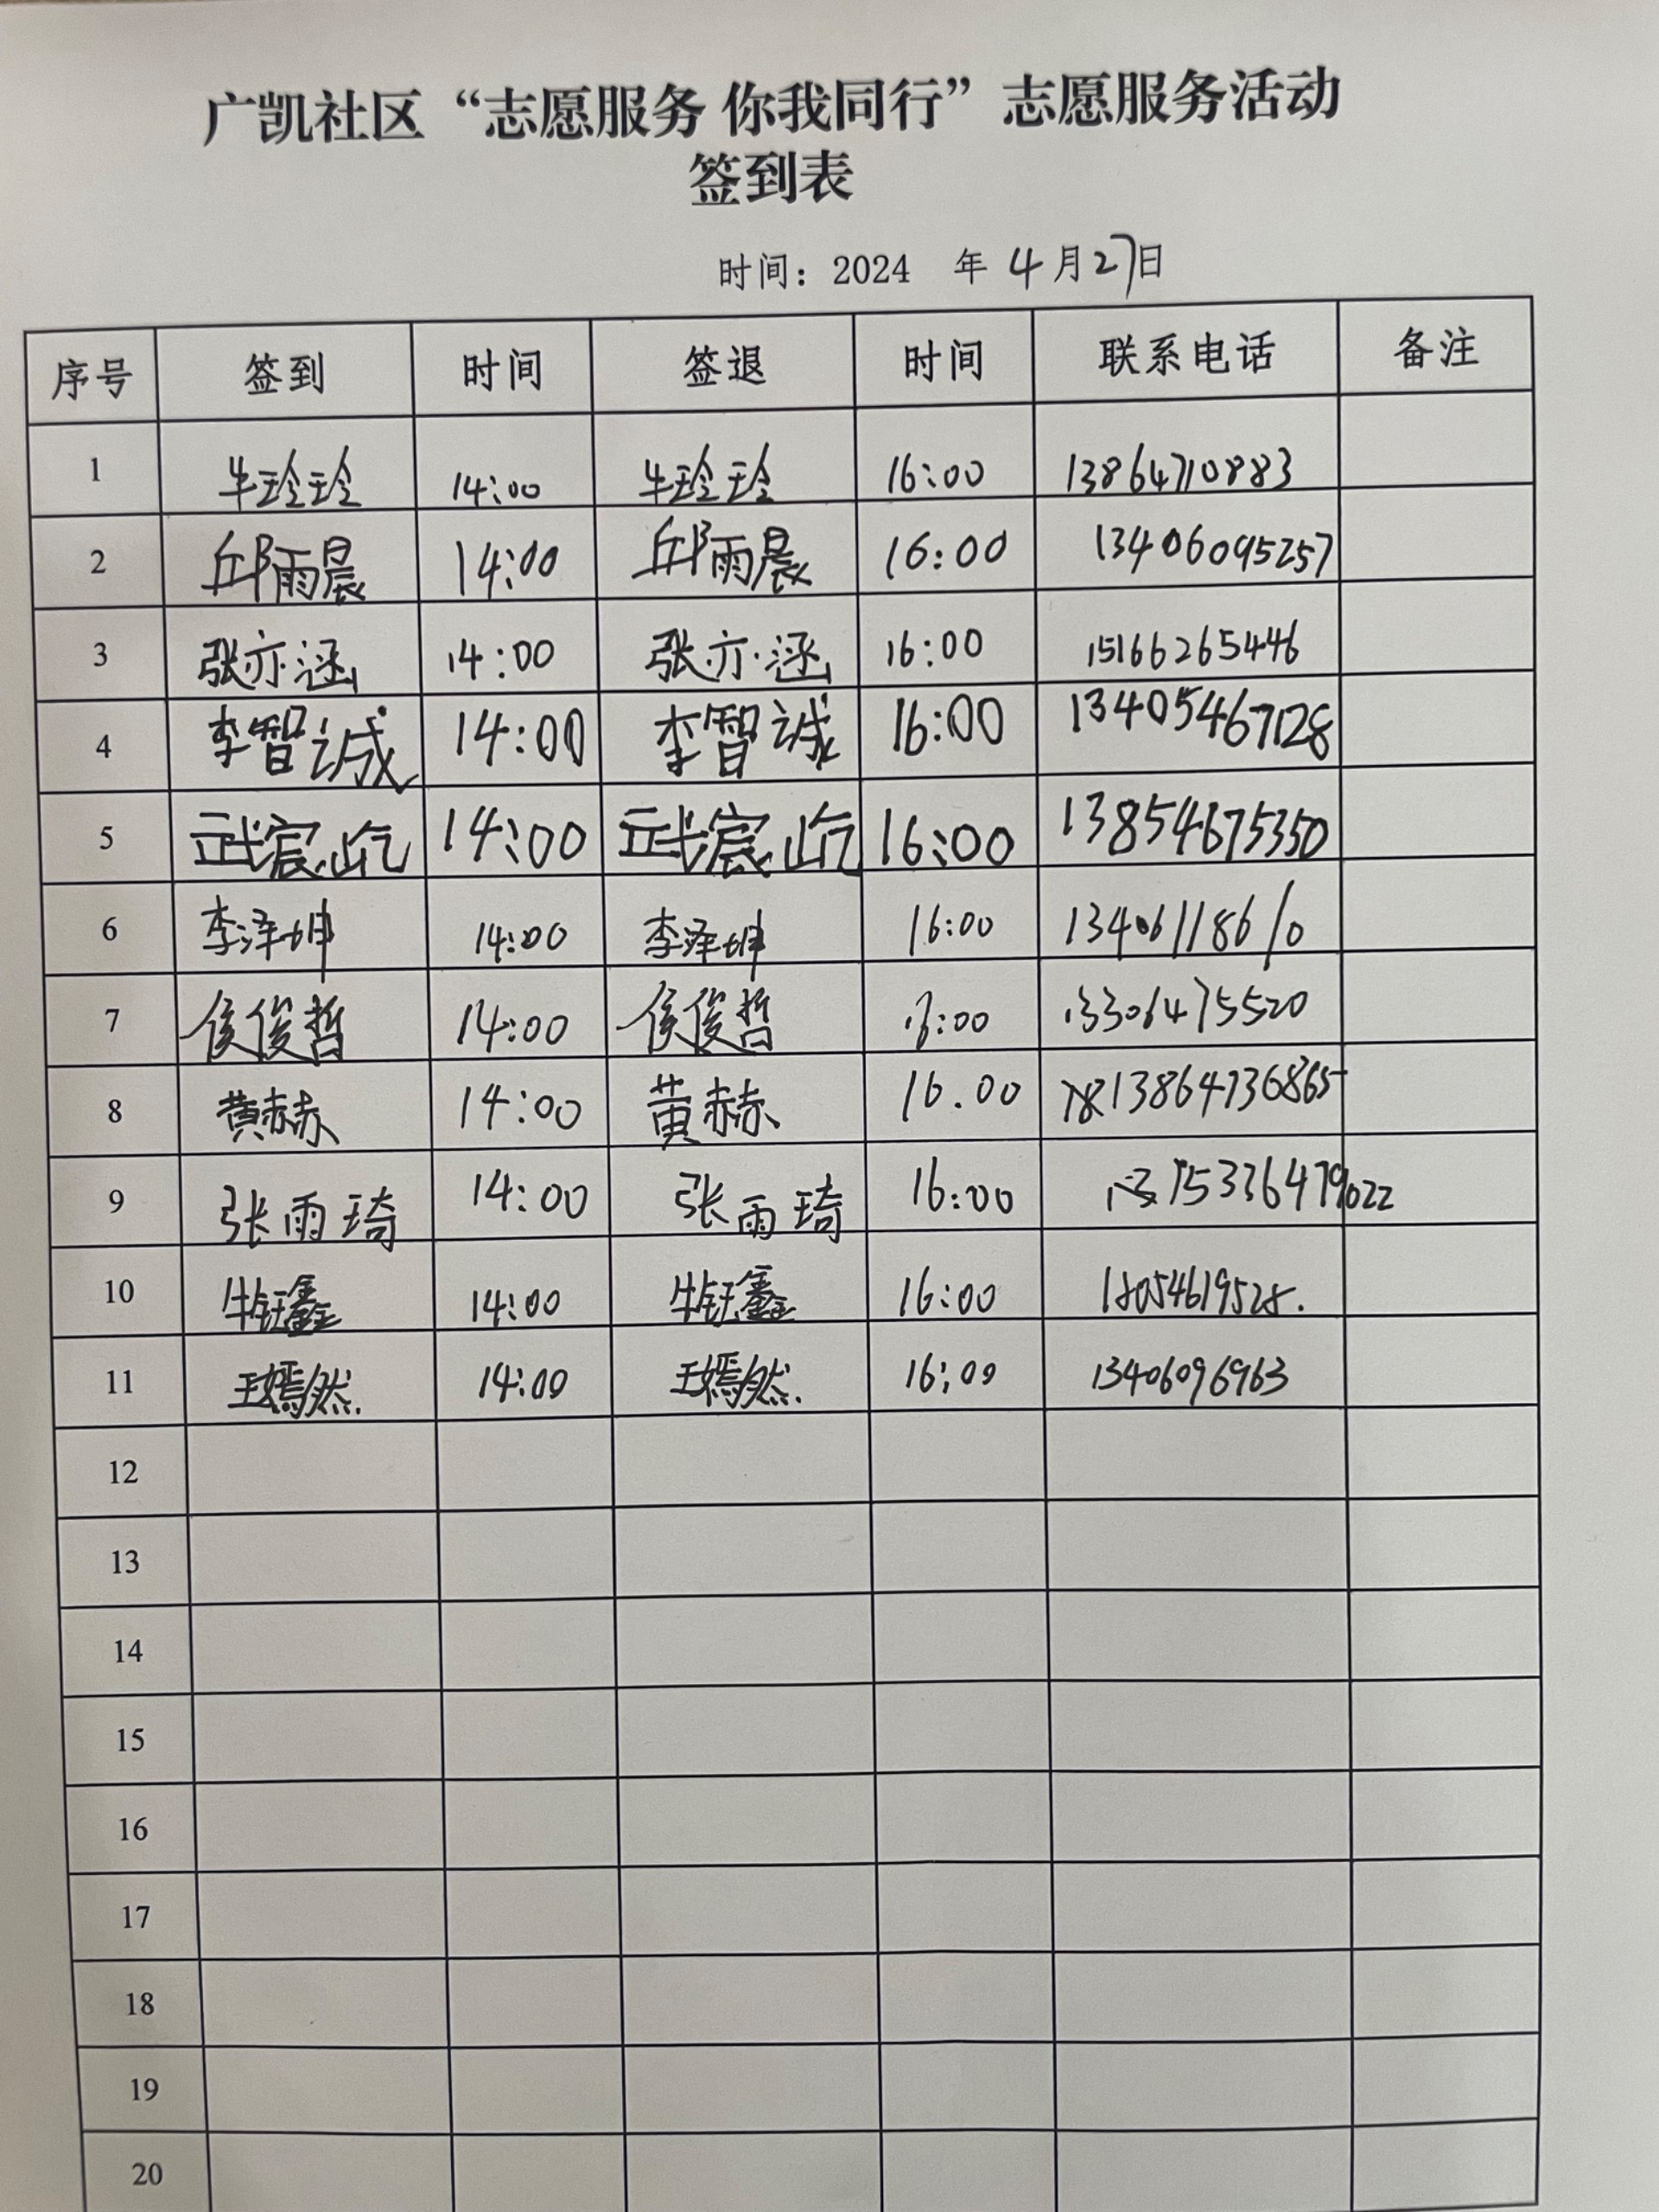 广凯社区“志愿服务 你我同行”志愿服务活动
签到表
时间：2024 年 4月27日
序号 签到 时间 签退 时间 联系电话 备注
1 牛玲玲 14:00 牛玲玲 16:00 13864710883
2 邱雨晨 14:00 邱雨晨 16:00 13406095257
3 张亦涵 14:00 张亦涵 16:00 15166265446
4 李智诚 14:00 李智诚 16:00 13405467128
5 武宸屹 14:00 武宸屹 16:00 13854675350
6 李泽坤 14:00 李泽坤 16:00 13406118610
7 侯俊哲 14:00 侯俊哲 16:00 13306475520
8 黄赫 14:00 黄赫 16.00 13864736865
9 张雨琦 14:00 张雨琦 16:00 15336479022
10 牛钰鑫 14:00 牛钰鑫 16:00 18054619528.
11 王嫣然. 14:00 王嫣然. 16:00 13406096963
12
13
14
15
16
17
18
19
20